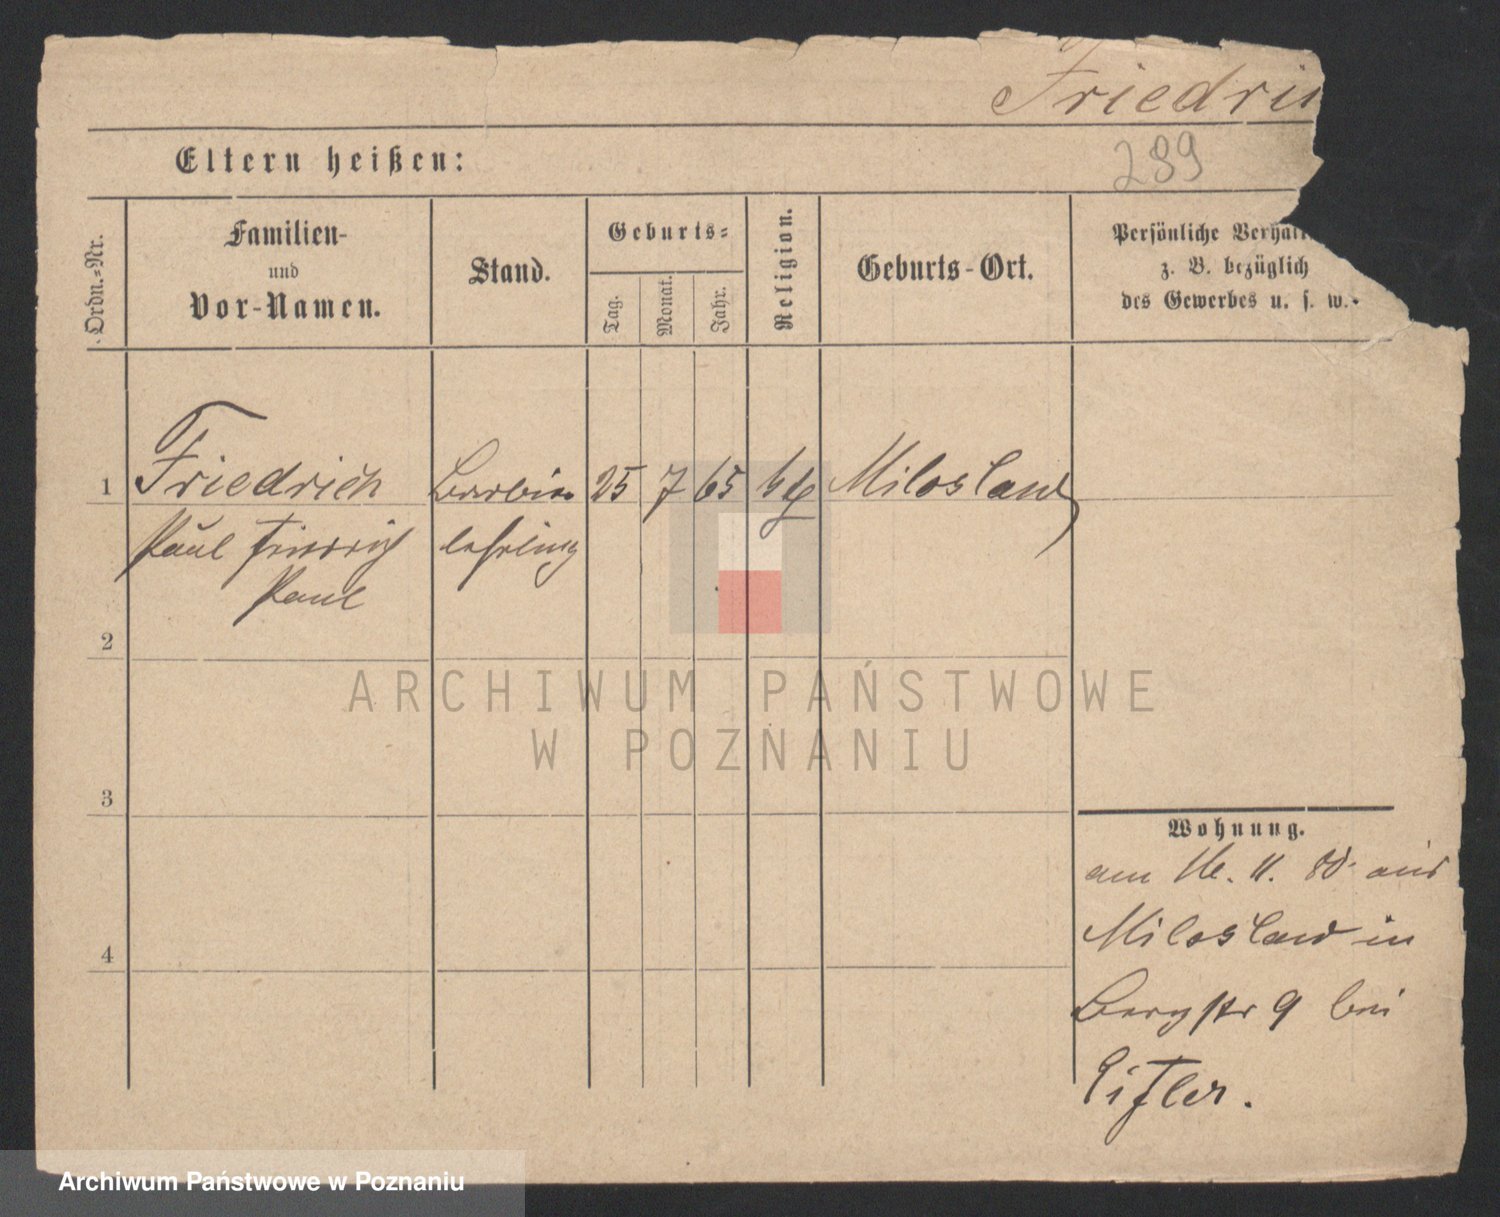 Friedri
289
Eltern heißen:
Ordn.-Nr.
Familien-
und
Vor-Namen.
Stand.
Geburts-
Tag.
Monat.
Jahr.
Religion.
Geburts-Ort.
Persönliche Verhält
z. B. bezüglich
des Gewerbes u. s. w.
1 Friedrich Barbier 25 7 65 Miloslaw
Paul Friedrich lehrling
Paul
2
3
4
Wohnung.
am 16. 11. 80. aus
Miloslaw in
Bergstr 9 bei
Eifler.
ARCHIWUM PAŃSTWOWE
W POZNANIU
Archiwum Państwowe w Poznaniu